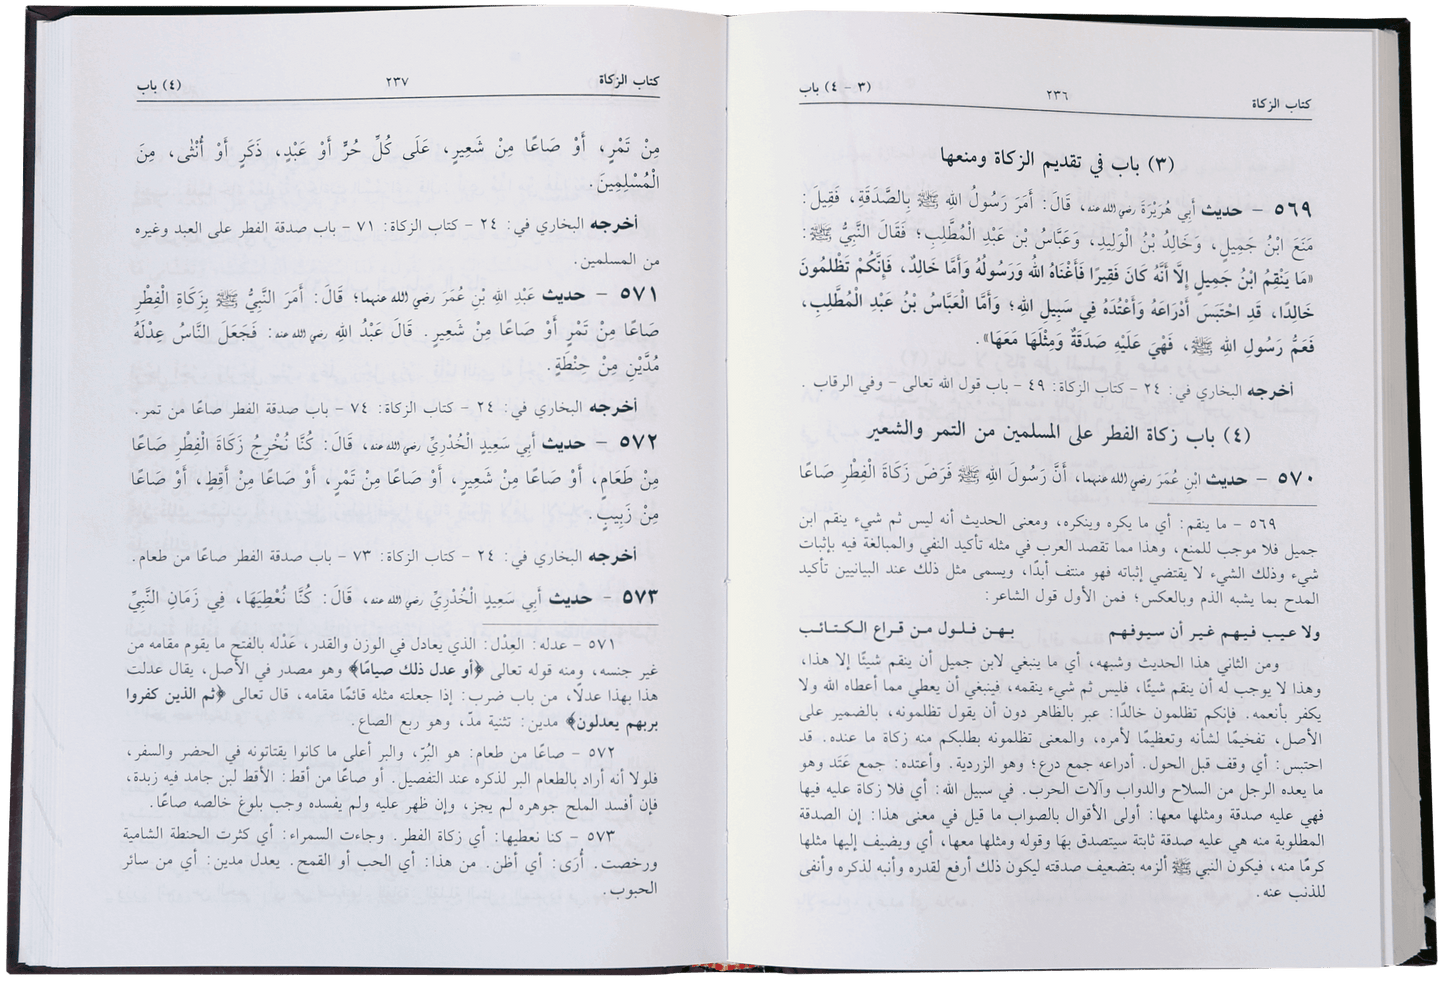 كتاب الزكاة ٢٣٦ (٣ - ٤) باب
(٣) باب في تقديم الزكاة ومنعها
٥٦٩ - حديث أبي هُرَيْرَةَ رضي الله عنه، قَالَ: أَمَرَ رَسُولُ اللهِ ﷺ بِالصَّدَقَةِ، فَقِيلَ:
مَنَعَ ابْنُ جَمِيلٍ، وَخَالِدُ بْنُ الْوَلِيدِ، وَعَبَّاسُ بْنُ عَبْدِ الْمُطَّلِبِ؛ فَقَالَ النَّبِيُّ ﷺ:
«مَا يَنْقِمُ ابْنُ جَمِيلٍ إِلَّا أَنَّهُ كَانَ فَقِيرًا فَأَغْنَاهُ اللهُ وَرَسُولُهُ وَأَمَّا خَالِدٌ، فَإِنَّكُمْ تَظْلِمُونَ
خَالِدًا، قَدِ احْتَبَسَ أَدْرَاعَهُ وَأَعْتُدَهُ فِي سَبِيلِ اللهِ؛ وَأَمَّا الْعَبَّاسُ بْنُ عَبْدِ الْمُطَّلِبِ،
فَعَمُّ رَسُولِ اللهِ ﷺ، فَهْيَ عَلَيْهِ صَدَقَةٌ وَمِثْلُهَا مَعَهَا».
أخرجه البخاري في: ٢٤ - كتاب الزكاة: ٤٩ - باب قول الله تعالى - وفي الرقاب .
(٤) باب زكاة الفطر على المسلمين من التمر والشعير
٥٧٠ - حديث ابْنِ عُمَرَ رضي الله عنهما، أَنَّ رَسُولَ اللهِ ﷺ فَرَضَ زَكَاةَ الْفِطْرِ صَاعًا
٥٦٩ - ما ينقم: أي ما يكره وينكره، ومعنى الحديث أنه ليس ثم شيء ينقم ابن
جميل فلا موجب للمنع، وهذا مما تقصد العرب في مثله تأكيد النفي والمبالغة فيه بإثبات
شيء وذلك الشيء لا يقتضي إثباته فهو منتف أبدًا، ويسمى مثل ذلك عند البيانيين تأكيد
المدح بما يشبه الذم وبالعكس؛ فمن الأول قول الشاعر:
ولا عيب فيهم غير أن سيوفهم بهن فلول من قراع الكتائب
ومن الثاني هذا الحديث وشبهه، أي ما ينبغي لابن جميل أن ينقم شيئًا إلا هذا،
وهذا لا يوجب له أن ينقم شيئًا، فليس ثم شيء ينقمه، فينبغي أن يعطي مما أعطاه الله ولا
يكفر بأنعمه. فإنكم تظلمون خالدًا: عبر بالظاهر دون أن يقول تظلمونه، بالضمير على
الأصل، تفخيمًا لشأنه وتعظيمًا لأمره، والمعنى تظلمونه بطلبكم منه زكاة ما عنده. قد
احتبس: أي وقف قبل الحول. أدراعه جمع درع؛ وهو الزردية. وأعتده: جمع عَتَد وهو
ما يعده الرجل من السلاح والدواب وآلات الحرب. في سبيل الله: أي فلا زكاة عليه فيها
فهي عليه صدقة ومثلها معها: أولى الأقوال بالصواب ما قيل في معنى هذا: إن الصدقة
المطلوبة منه هي عليه صدقة ثابتة سيتصدق بها وقوله ومثلها معها، أي ويضيف إليها مثلها
كرمًا منه، فيكون النبي ﷺ ألزمه بتضعيف صدقته ليكون ذلك أرفع لقدره وأنبه لذكره وأنفى
للذنب عنه.
كتاب الزكاة ٢٣٧ (٤) باب
مِنْ تَمْرٍ، أَوْ صَاعًا مِنْ شَعِيرٍ، عَلَى كُلِّ حُرٍّ أَوْ عَبْدٍ، ذَكَرٍ أَوْ أُنْثَى، مِنَ
الْمُسْلِمِينَ.
أخرجه البخاري في: ٢٤ - كتاب الزكاة: ٧١ - باب صدقة الفطر على العبد وغيره
من المسلمين.
٥٧١ - حديث عَبْدِ اللهِ بْنِ عُمَرَ رضي الله عنهما؛ قَالَ: أَمَرَ النَّبِيُّ ﷺ بِزَكَاةِ الْفِطْرِ
صَاعًا مِنْ تَمْرٍ أَوْ صَاعًا مِنْ شَعِيرٍ. قَالَ عَبْدُ اللهِ رضي الله عنه: فَجَعَلَ النَّاسُ عِدْلَهُ
مُدَّيْنِ مِنْ حِنْطَةٍ.
أخرجه البخاري في: ٢٤ - كتاب الزكاة: ٧٤ - باب صدقة الفطر صاعًا من تمر.
٥٧٢ - حديث أَبِي سَعِيدٍ الْخُدْرِيِّ رضي الله عنه، قَالَ: كُنَّا نُخْرِجُ زَكَاةَ الْفِطْرِ صَاعًا
مِنْ طَعَامٍ، أَوْ صَاعًا مِنْ شَعِيرٍ، أَوْ صَاعًا مِنْ تَمْرٍ، أَوْ صَاعًا مِنْ أَقِطٍ، أَوْ صَاعًا
مِنْ زَبِيبٍ.
أخرجه البخاري في: ٢٤ - كتاب الزكاة: ٧٣ - باب صدقة الفطر صاعًا من طعام.
٥٧٣ - حديث أَبِي سَعِيدٍ الْخُدْرِيِّ رضي الله عنه، قَالَ: كُنَّا نُعْطِيهَا، فِي زَمَانِ النَّبِيِّ
٥٧١ - عدله: العِدْل: الذي يعادل في الوزن والقدر، عَدْله بالفتح ما يقوم مقامه من
غير جنسه، ومنه قوله تعالى ﴿أو عدل ذلك صيامًا﴾ وهو مصدر في الأصل، يقال عدلت
هذا بهذا عدلًا، من باب ضرب: إذا جعلته مثله قائمًا مقامه، قال تعالى ﴿ثم الذين كفروا
بربهم يعدلون﴾ مدين: تثنية مدّ، وهو ربع الصاع.
٥٧٢ - صاعًا من طعام: هو البُرّ، والبر أعلى ما كانوا يقتاتونه في الحضر والسفر،
فلولا أنه أراد بالطعام البر لذكره عند التفصيل. أو صاعًا من أقط: الأقط لبن جامد فيه زبدة،
فإن أفسد الملح جوهره لم يجز، وإن ظهر عليه ولم يفسده وجب بلوغ خالصه صاعًا.
٥٧٣ - كنا نعطيها: أي زكاة الفطر. وجاءت السمراء: أي كثرت الحنطة الشامية
ورخصت. أُرَى: أي أظن. من هذا: أي الحب أو القمح. يعدل مدين: أي من سائر
الحبوب.